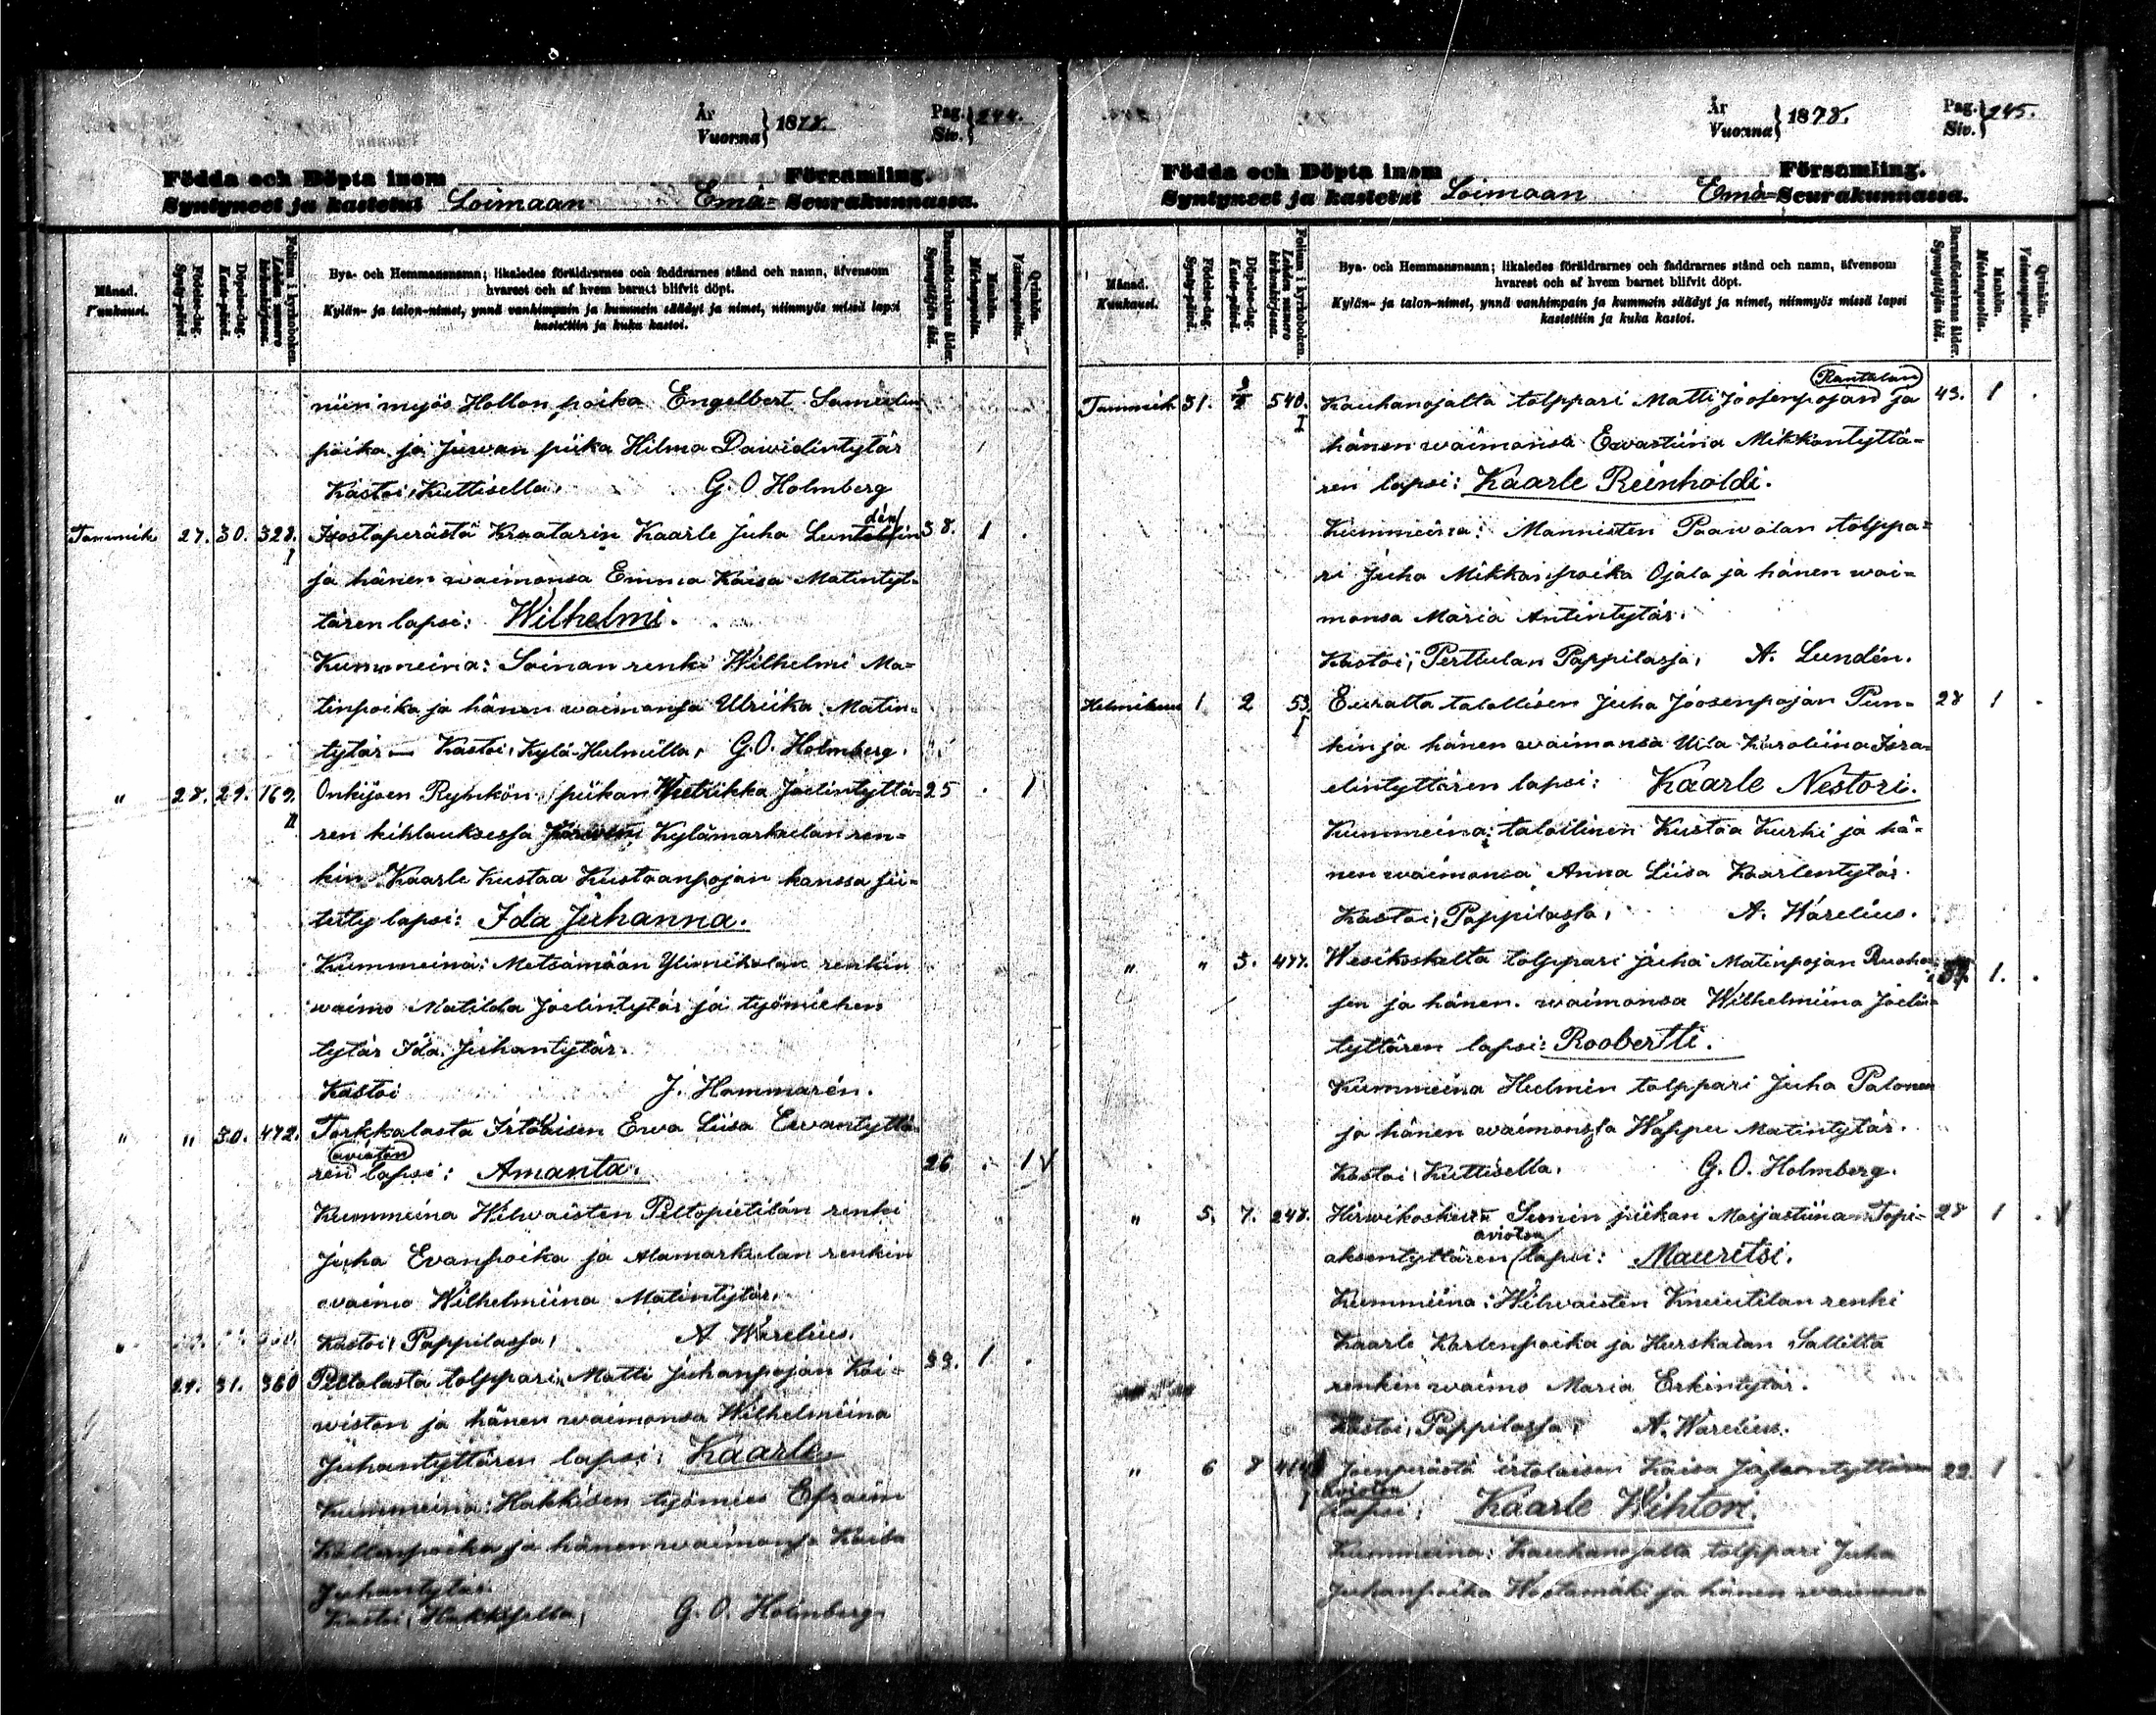 År
Vuonna} 1878. Pag.
Siv.} 244.
Födda och Döpta inom Församling.
Syntyneet ja kastetut Loimaan Emä- Seurakunnassa.
Månad.
Kuukausi.
Födelse-dag.
Synty-päivä.
Döpelse-dag.
Kaste-päivä.
Folium i kyrkoboken.
Lehden numero kirkonkirjassa.
Bya- och Hemmansnamn; likaledes föräldrarnes och faddrarnes stånd och namn, äfvensom
hvarest och af hvem barnet blifvit döpt.
Kylän- ja talon-nimet, ynnä vanhimpain ja kummein säädyt ja nimet, niinmyös missä lapsi
kastettiin ja kuka kastoi.
Barnaföderskans ålder.
Synnyttäjän ikä.
Mankön.
Miehenpuolia.
Qvinkön.
Vaimonpuolia.
niin myös Hollon poika Engelbert Samuelin
poika ja Juwan piika Hilma Dawidintytär
Kastoi, Kuttisella, G. O. Holmberg
Tammik 27. 30. 328. I Isostaperästä Kraatarin Kaarle Juha 38. 1 .
ja hänen waimonsa Emma Kaisa Matintyt-
tären lapsi: Wilhelmi.
Kummeina: Soinan renki Wilhelmi Ma-
tinpoika ja hänen waimonsa Ulriika Matin-
tytär — Kastoi, Kylä-Hulmilla, G. O. Holmberg.
" 28. 29. 169. II Onkijoen Rynkön piikan Joelintyttä- 25 . 1
ren kihlauksessa Kylämarkulan ren-
kin Kaarle Kustaa Kustaanpojan kanssa sii-
tetty lapsi: Ida Juhanna.
Kummeina: Metsämaan Ylinikolan renkin
waimo Matilda Joelintytär ja työmiehen
tytär Ida Juhantytär.
Kastoi J. Hammarén.
" " 30. 472. Torkkalasta Irtolaisen Ewa Liisa Ewantyttä-
(avioton)
ren lapsi: Amanta. 26 . 1 V
Kummeina Wilwaisten Peltopietilän renki
Juha Evanpoika ja Alamarkulan renkin
waimo Wilhelmiina Matintytär.
Kastoi, Pappilassa, A. Warelius.
29. 31. 360 Peltolasta tolppari Matti Juhanpojan Koi- 39. 1 .
wiston ja hänen waimonsa Wilhelmiina
Juhantyttären lapsi: Kaarle
Kummeina: Hakkisen työmies Efraim
Kallenpoika ja hänen waimonsa Kaisa
Juhantytär.
Kastoi, G. O. Holmberg
År
Vuonna} 1878. Pag.
Siv.} 245.
Födda och Döpta inom Församling.
Syntyneet ja kastetut Loimaan Emä- Seurakunnassa.
Månad.
Kuukausi.
Födelse-dag.
Synty-päivä.
Döpelse-dag.
Kaste-päivä.
Folium i kyrkoboken.
Lehden numero kirkonkirjassa.
Bya- och Hemmansnamn; likaledes föräldrarnes och faddrarnes stånd och namn, äfvensom
hvarest och af hvem barnet blifvit döpt.
Kylän- ja talon-nimet, ynnä vanhimpain ja kummein säädyt ja nimet, niinmyös missä lapsi
kastettiin ja kuka kastoi.
Barnaföderskans ålder.
Synnyttäjän ikä.
Mankön.
Miehenpuolia.
Qvinkön.
Vaimonpuolia.
(Rantalan)
Tammik 31. 540. I Kauhanojalta tolppari Matti Joosenpojan ja 43. 1 .
hänen waimonsa Ewastiina Mikkontyttä-
ren lapsi: Kaarle Reinholdi.
Kummeina: Mannisten Paawolan tolppa-
ri Juha Mikkonpoika Ojala ja hänen wai-
monsa Maria Antintytär.
Kastoi, Perttulan Pappilassa, A. Lundén.
Helmikuu 1 2 53. I Euralta talollisen Juha Joosenpojan Pun- 28 1 .
kin ja hänen waimonsa Ulla Karoliina Isra-
elintyttären lapsi: Kaarle Nestori.
Kummeina: talollinen Kustaa Kurki ja hä-
nen waimonsa Anna Liisa Kaarlentytär.
Kastoi, Pappilassa, A. Warelius.
" " 3. 477. Wesikoskelta tolppari Juha Matinpojan 1. .
sen ja hänen waimonsa Wilhelmiina Joelin-
tyttären lapsi: Roobertti.
Kummeina Hulmin tolppari Juha Palonen
ja hänen waimonsa Wappu Matintytär.
Kastoi, Kuttisella, G. O. Holmberg.
" 5. 7. 248. Hirwikosken Sunin piikan Maijastiina Topi- 28 1 . V
aviotон
aksentyttären lapsi: Mauritsi.
Kummeina: Wilwaisten Knuutilan renki
Kaarle Karlenpoika ja Hurskalan Sallilta
renkin waimo Maria Erkintytär.
Kastoi, Pappilassa, A. Warelius.
" 6 8 Joenperästä irtolaisen Kaisa 22. 1 . V
aviotон
lapsi: Kaarle Wihtori.
Kummeina: Kauhanojalta tolppari Juha
Juhanpoika ja hänen waimonsa